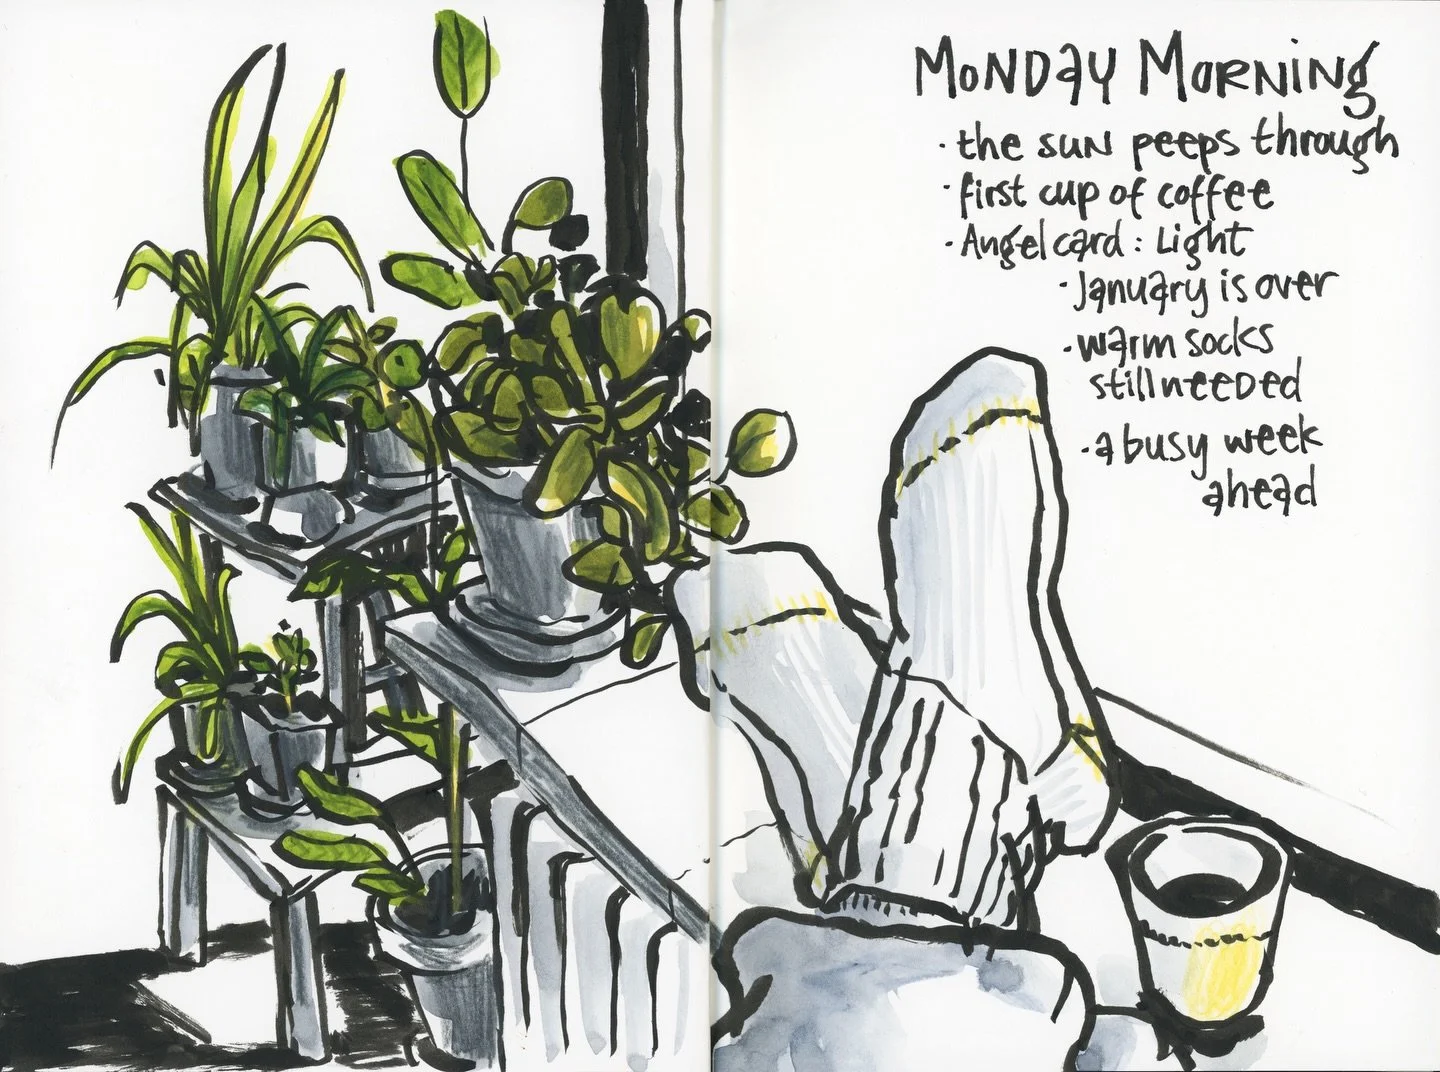 Monday Morning
· the sun peeps through
· first cup of coffee
· Angel card : Light
· January is over
· warm socks
still needed
· a busy week
ahead